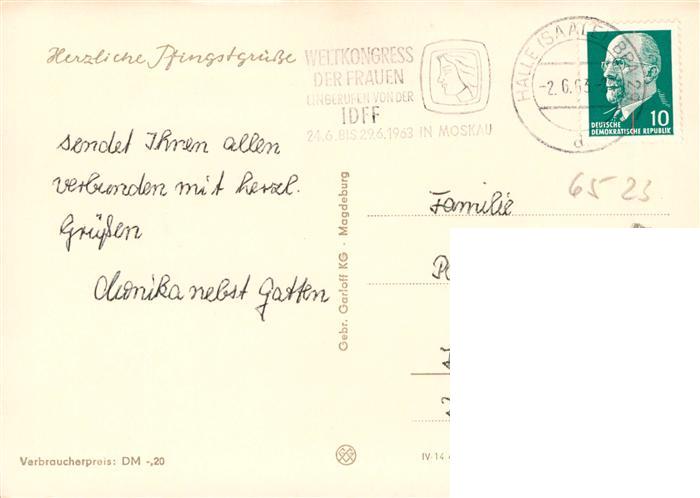 Herzliche Pfingstgrüße
WELTKONGRESS
DER FRAUEN
EINBERUFEN VON DER
IDFF
24.6. BIS 29.6.1963 IN MOSKAU
HALLE (SAALE) BPA 23
-2.6.63
d
10
DEUTSCHE
DEMOKRATISCHE REPUBLIK
sendet Ihnen allen
verbunden mit herzl.
Grüßen
Monika nebst Gatten
Gebr. Garloff KG · Magdeburg
65 23
Familie
Verbraucherpreis: DM -,20
IV-14